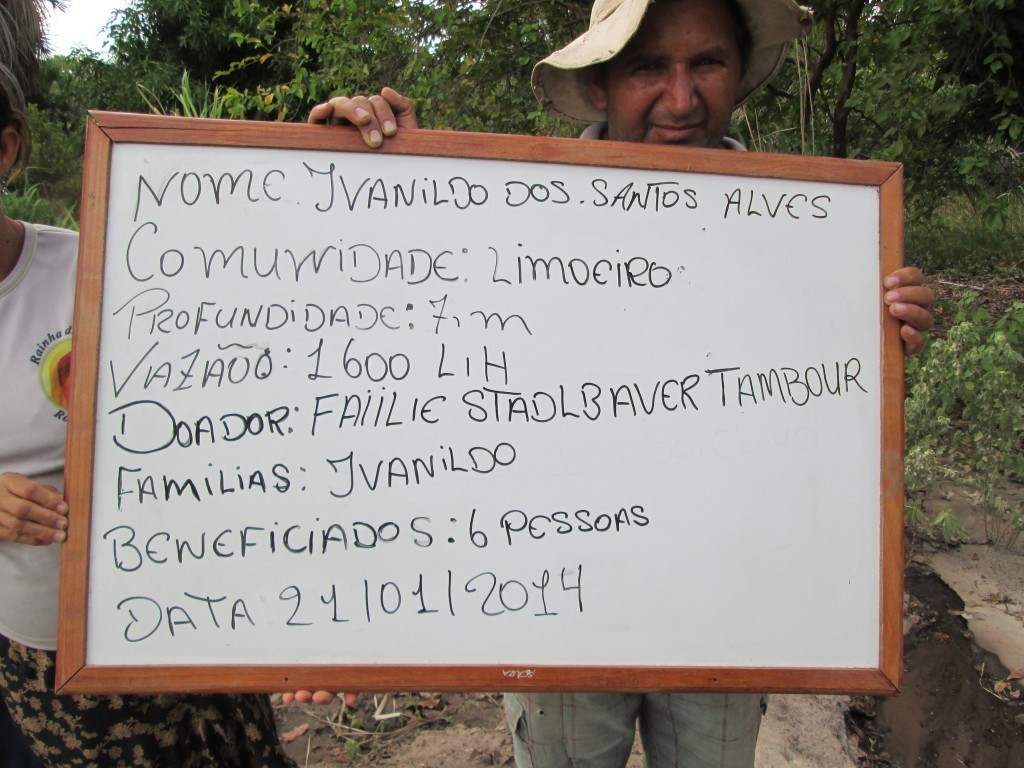 NOME. IVANILDO DOS. SANTOS ALVES
COMUNIDADE: LIMOEIRO.
PROFUNDIDADE: 7,m
VAZÃOO: 1600 LIH
DOADOR: FAIILIE STADLBAVER TAMBOUR
FAMILIAS: IVANILDO
BENEFICIADOS: 6 PESSOAS
DATA 21/01/2014
Rainha d